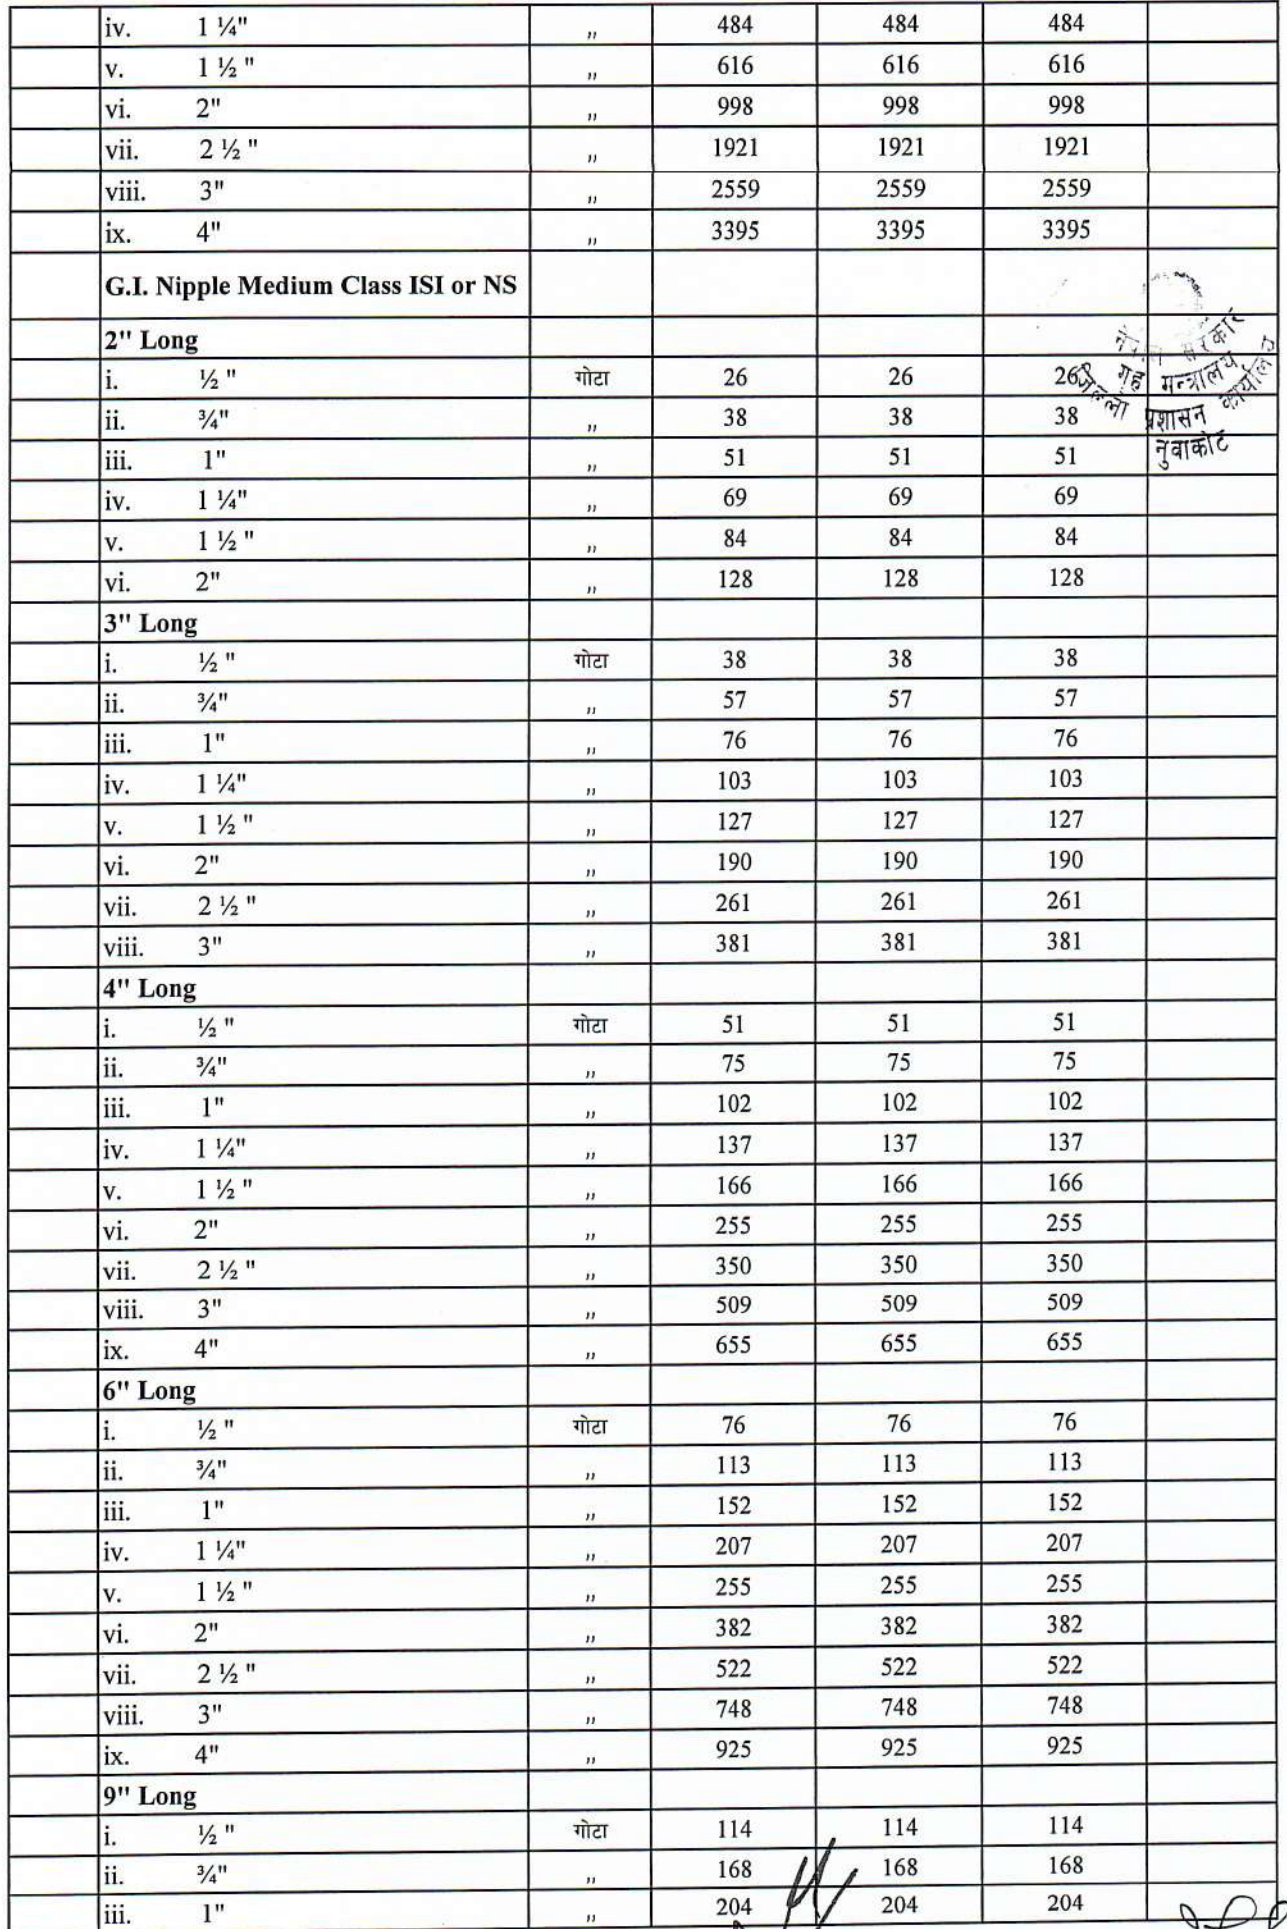 iv. 1 ¼" ,, 484 484 484
v. 1 ½ " ,, 616 616 616
vi. 2" ,, 998 998 998
vii. 2 ½ " ,, 1921 1921 1921
viii. 3" ,, 2559 2559 2559
ix. 4" ,, 3395 3395 3395
G.I. Nipple Medium Class ISI or NS
2" Long
i. ½ " गोटा 26 26 26
ii. ¾" ,, 38 38 38
iii. 1" ,, 51 51 51
iv. 1 ¼" ,, 69 69 69
v. 1 ½ " ,, 84 84 84
vi. 2" ,, 128 128 128
नेपाल सरकार
गृह मन्त्रालय
जिल्ला प्रशासन कार्यालय
नुवाकोट
3" Long
i. ½ " गोटा 38 38 38
ii. ¾" ,, 57 57 57
iii. 1" ,, 76 76 76
iv. 1 ¼" ,, 103 103 103
v. 1 ½ " ,, 127 127 127
vi. 2" ,, 190 190 190
vii. 2 ½ " ,, 261 261 261
viii. 3" ,, 381 381 381
4" Long
i. ½ " गोटा 51 51 51
ii. ¾" ,, 75 75 75
iii. 1" ,, 102 102 102
iv. 1 ¼" ,, 137 137 137
v. 1 ½ " ,, 166 166 166
vi. 2" ,, 255 255 255
vii. 2 ½ " ,, 350 350 350
viii. 3" ,, 509 509 509
ix. 4" ,, 655 655 655
6" Long
i. ½ " गोटा 76 76 76
ii. ¾" ,, 113 113 113
iii. 1" ,, 152 152 152
iv. 1 ¼" ,, 207 207 207
v. 1 ½ " ,, 255 255 255
vi. 2" ,, 382 382 382
vii. 2 ½ " ,, 522 522 522
viii. 3" ,, 748 748 748
ix. 4" ,, 925 925 925
9" Long
i. ½ " गोटा 114 114 114
ii. ¾" ,, 168 168 168
iii. 1" ,, 204 204 204